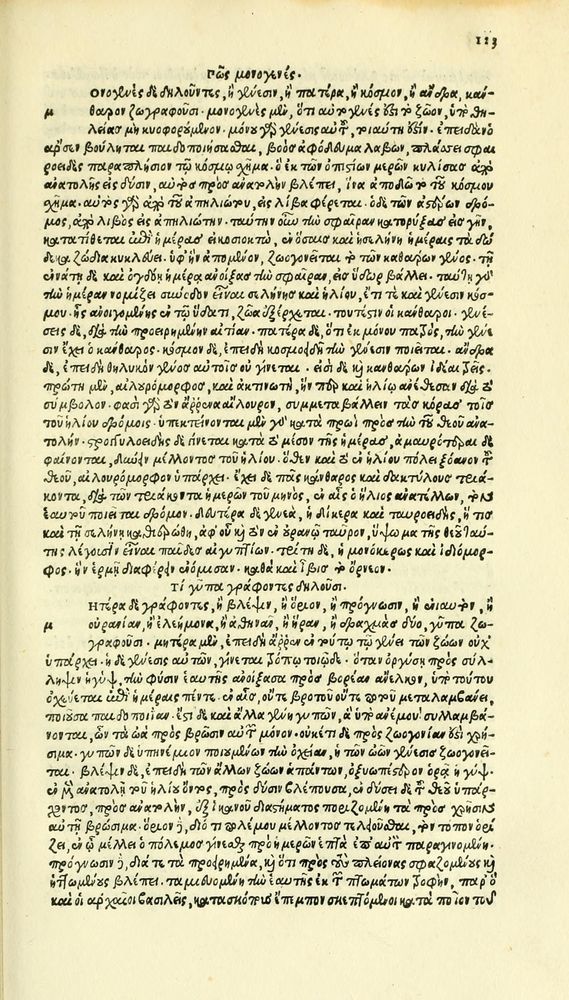 123
Πῶς μονογενές.
Ονογενὲς δὲ δηλοῦντες, ἢ γένεσιν, ἢ πατέρα, ἢ κόσμον, ἢ ἄνδρα, κάν-
μ θαρον ζωγραφοῦσι. μονογενὲς μὲν, ὅτι αὐτογενές ἐστι τὸ ζῶον, ὑπὸ θη-
λείας μὴ κυοφορούμενον. μόνη γὰρ γένεσις αὐτοῦ, τοιαύτη ἐστίν. ἐπειδὰν ὁ
ἄρσην βούληται παιδοποιήσασθαι, βοὸς ἀφόδευμα λαβὼν, πλάσσει σφαι
ροειδὲς παραπλήσιον τῷ κόσμῳ σχῆμα. ὃ ἐκ τῶν ὀπισθίων μερῶν κυλίσας ἀπὸ
ἀνατολῆς εἰς δύσιν, αὐτὸς πρὸς ἀνατολὴν βλέπει, ἵνα ἀποδῷ τὸ τοῦ κόσμου
σχῆμα. αὐτὸς γὰρ ἀπὸ τοῦ ἀπηλιώτου, εἰς λίβα φέρεται. ὁ δὲ τῶν ἀστέρων δρό-
μος, ἀπὸ λιβὸς εἰς ἀπηλιώτην. ταύτην οὖν τὴν σφαῖραν κατορύξας εἰς γῆν,
κατατίθεται ἐπὶ ἡμέρας εἰκοσιοκτὼ, ἐν ὅσαις καὶ ἡ σελήνη ἡμέραις τὰ δώ
δεκα ζώδια κυκλεύει. ὑφ' ἣν ἀπομένον, ζωογονεῖται τὸ τῶν κανθάρων γένος. τῇ
ἐννάτῃ δὲ καὶ ὀγδόῃ ἡμέρᾳ ἀνοίξας τὴν σφαῖραν, εἰς ὕδωρ βάλλει. ταύτην γὰρ
τὴν ἡμέραν νομίζει σύνοδον εἶναι σελήνης καὶ ἡλίου, ἔτι τε καὶ γένεσιν κόσ-
μου. ἧς ἀνοιγομένης ἐν τῷ ὕδατι, ζῶα ἐξέρχεται. τουτέστιν οἱ κάνθαροι. γένε-
σεις δὲ, διὰ τὴν προειρημένην αἰτίαν. πατέρα δὲ, ὅτι ἐκ μόνου πατρὸς, τὴν γένε
σιν ἔχει ὁ κάνθαρος. κόσμον δὲ, ἐπειδὴ κοσμοειδῆ τὴν γένεσιν ποιεῖται. ἄνδρα
δὲ, ἐπειδὴ θηλυκὸν γένος αὐτοῖς οὐ γίνεται. εἰσὶ δὲ καὶ κανθάρων ἰδέαι τρεῖς.
πρώτη μὲν, αἰλουρόμορφος, καὶ ἀκτινωτὴ, ἥνπερ καὶ ἡλίῳ ἀνέθεσαν διὰ τὸ
σύμβολον. φασὶ γὰρ τὸν ἄρρενα αἴλουρον, συμμεταβάλλειν τὰς κόρας τοῖς
τοῦ ἡλίου δρόμοις. ὑπεκτείνονται μὲν γὰρ κατὰ πρωῒ πρὸς τὴν τοῦ θεοῦ ἀνα-
τολήν. στρογγυλοειδεῖς δὲ γίνεται κατὰ τὸ μέσον τῆς ἡμέρας, ἀμαυρότεραι δὲ
φαίνονται, δύνειν μέλλοντος τοῦ ἡλίου. ὅθεν καὶ τὸ ἐν ἡλίου πόλει ξόανον τοῦ
θεοῦ, αἰλουρόμορφον ὑπάρχει. ἔχει δὲ πᾶς κάνθαρος καὶ δακτύλους τριά-
κοντα, διὰ τὴν τριακονταήμερον τοῦ μηνὸς, ἐν αἷς ὁ ἥλιος ἀνατέλλων, τὸν
ἑαυτοῦ ποιεῖται δρόμον. δευτέρα δὲ γενεὰ, ἡ δίκερως καὶ ταυροειδὴς, ἥ τις
καὶ τῇ σελήνῃ καθιερώθη, ἀφ' οὗ καὶ τὸν ἐν οὐρανῷ ταῦρον, ὕψωμα τῆς θεοῦ ταύ-
της λέγουσιν εἶναι παῖδες αἰγυπτίων. τρίτη δὲ, ἡ μονόκερως καὶ ἰδιόμορ-
φος. ἣν ἑρμῇ διαφέρειν ἐνόμισαν. καθὰ καὶ ἶβις τὸ ὄρνεον.
Τί γῦπα γράφοντες δηλοῦσι.
Ητέρα δὲ γράφοντες, ἢ βλέψιν, ἢ ὅριον, ἢ πρόγνωσιν, ἢ ἐνιαυτὸν, ἢ
μ οὐρανίαν, ἢ ἐλεήμονα, ἢ ἀθηνᾶν, ἢ ἥραν, ἢ δραχμὰς δύο, γῦπα ζω-
γραφοῦσι. μητέρα μὲν, ἐπειδὴ ἄρρεν ἐν τούτῳ τῷ γένει τῶν ζώων οὐχ
ὑπάρχει. ἡ δὲ γένεσις αὐτῶν, γίνεται τρόπῳ τοιῷδε. ὅταν ὀργήσῃ πρὸς σύλ-
ληψιν ἡ γὺψ, τὴν φύσιν ἑαυτῆς ἀνοίξασα πρὸς βορέαν ἄνεμον, ὑπὸ τούτου
ὀχεύεται ἐπὶ ἡμέρας πέντε. ἐν αἷς, οὔτε βροτοῦ οὔτε ποτοῦ μεταλαμβάνει,
ποθοῦσα παιδοποιΐαν. ἔστι δὲ καὶ ἄλλα γένη γυπῶν, ἃ ὑπὸ ἀνέμου συλλαμβά-
νονται, ὧν τὰ ὠὰ πρὸς βρῶσιν αὐτοῦ μόνον. οὐκέτι δὲ πρὸς ζωογονίαν ἐστὶ χρή-
σιμα. γυπῶν δὲ ὑπηνέμιον ποιουμένων τὴν ὀχείαν, ἡ τῶν ὠῶν γένεσις ζωογονεῖ-
ται. βλέψιν δὲ, ἐπειδὴ τῶν ἄλλων ζώων ἁπάντων, ὀξυωπέστερον ὁρᾷ ἡ γύψ.
ἐν μὲν ἀνατολῇ τοῦ ἡλίου ὄντος, πρὸς δύσιν βλέπουσα, ἐν δύσει δὲ τοῦ θεοῦ ὑπάρ-
χοντος, πρὸς ἀνατολὴν, ἐξ ἱκανοῦ διαστήματος ποριζομένη τὰ πρὸς χρῆσιν
αὐτῇ βρώσιμα. ὅριον δὲ, διότι πολέμου μέλλοντος τελεῖσθαι, τὸν τόπον ὁρί
ζει, ἐν ᾧ μέλλει ὁ πόλεμος γίνεσθαι, πρὸ ἡμερῶν ἑπτὰ ἐπ' αὐτὸν παραγινομένη.
πρόγνωσιν δὲ, διά τε τὰ προειρημένα, καὶ ὅτι πρὸς τοὺς πλείονας σφαζομένους καὶ
ἡττωμένους βλέπει. ταμιευομένη τὴν ἑαυτῆς ἐκ τῶν πτωμάτων τροφὴν, παρ' ὃ
καὶ οἱ ἀρχαῖοι βασιλεῖς, κατασκόπους ἔπεμπον σκεπτομένοι κατὰ ποῖον τοῦ